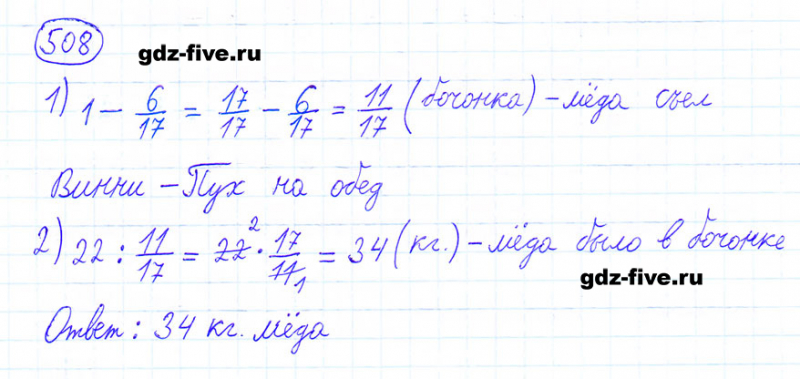 508
gdz-five.ru
1) 1 - 6/17 = 17/17 - 6/17 = 11/17 (бочонка) - мёда съел
Винни - Пух на обед
2) 22 : 11/17 = 22² · 17/11₁ = 34 (кг.) - мёда было в бочонке
gdz-five.ru
Ответ: 34 кг. мёда